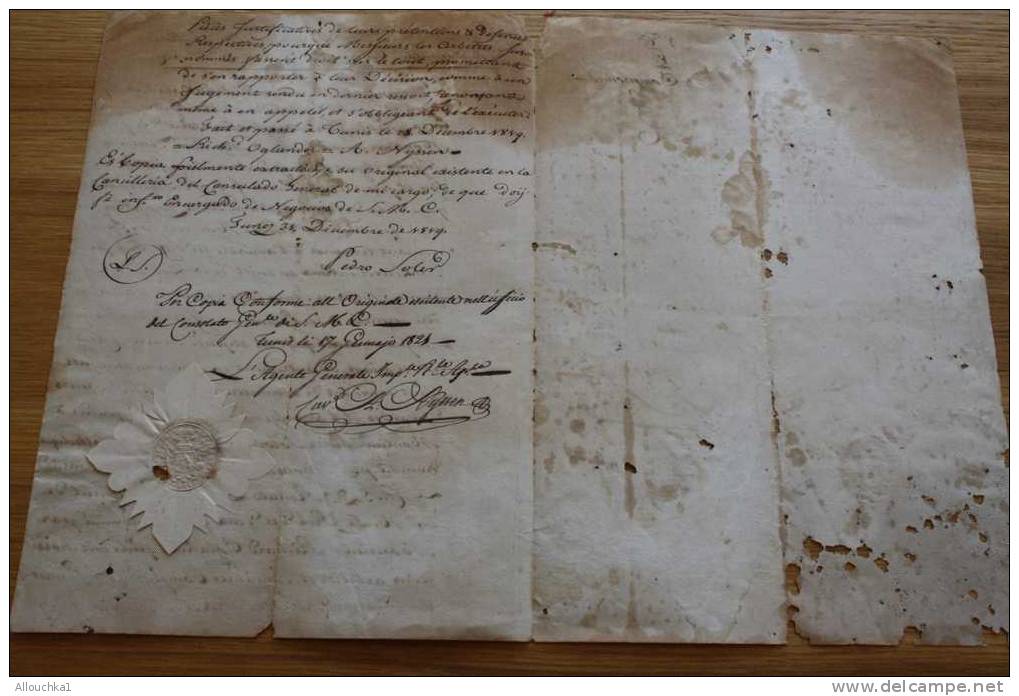 Pièces Justificatives de leurs prétentions & defenses
Respectives pourque Messieurs les Arbitres sus
nommés fassent droit sur le tout, promettant
de s'en rapporter à leur Décision, comme à un
Jugement rendu en dernier ressort, renonçant
même à en appeler, et s'obligeant de l'exécuter
Fait et passé à Tunis le Décembre 1819.
Oglander A. Nyssen
Es Copia fielmente extractada de su Original existente en la
Cancilleria del Consulado General de mi cargo, de que doy
fé Encargado de Negocios de S. M. C.
Tunez 31 Décembre de 1819.
L.S.
Pedro Soler
Per Copia Conforme all' Originale esistente nell' ufficio
del Consolato Gen.le di S. M. C.
Tunis li 17 Gennajo 1824
L'Agente Generale Imp.le
Cav.e Nyssen
Allouchka1
www.delcampe.net